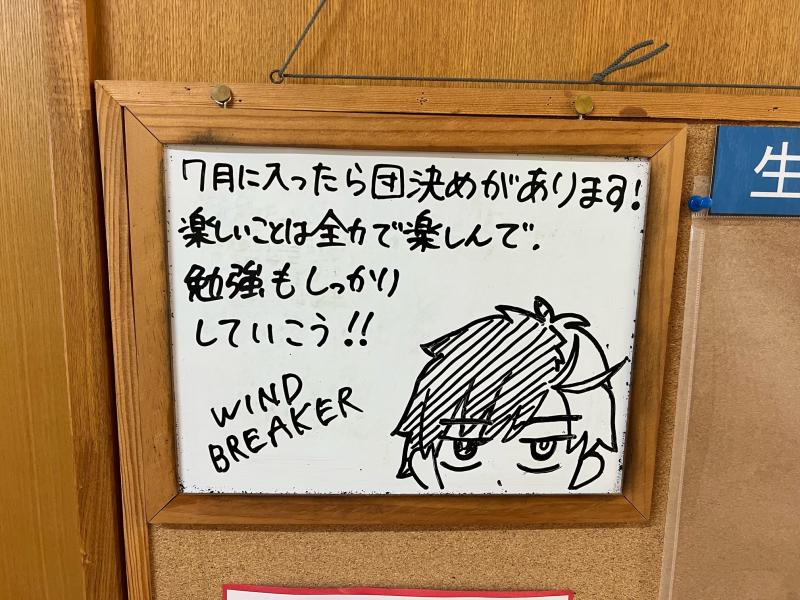 7月に入ったら団決めがあります!
楽しいことは全力で楽しんで、
勉強もしっかり
していこう!!
WIND
BREAKER
生